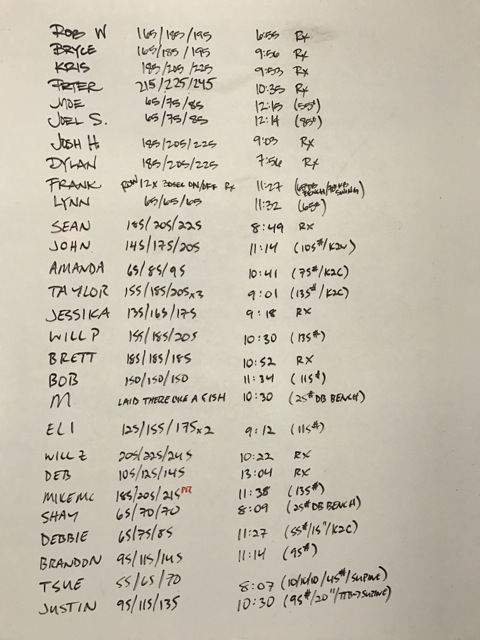 ROB W 165/185/195 6:55 Rx
BRYCE 165/185/195 9:56 Rx
KRIS 185/205/225 9:53 Rx
PETER 215/225/245 10:35 Rx
MOE 65/75/85 12:15 (55#)
JOEL S. 65/75/85 12:14 (85#)
JOSH H. 185/205/225 9:03 Rx
DYLAN 185/205/225 7:56 Rx
FRANK ROW 12X 30SEC ON/OFF Rx 11:27 BENCH/ SWING)
LYNN 65/65/65 11:32 (65#)
SEAN 185/205/225 8:49 RX
JOHN 145/175/205 11:14 (105#/K2C)
AMANDA 65/85/95 10:41 (75#/K2C)
TAYLOR 155/185/205x3 9:01 (135#/K2C)
JESSIKA 135/165/175 9:18 RX
WILL P 155/185/205 10:30 (135#)
BRETT 185/185/185 10:52 RX
BOB 150/150/150 11:34 (115#)
M LAID THERE LIKE A FISH 10:30 (25# DB BENCH)
ELI 125/155/175x2 9:12 (115#)
WILL Z 205/225/245 10:22 RX
DEB 105/125/145 13:04 RX
MIKE MC 185/205/215 11:38 (135#)
SHAY 65/70/70 8:09 (25# DB BENCH)
DEBBIE 65/75/85 11:27 (55#/15"/K2C)
BRANDON 95/115/145 11:14 (95#)
TSUE 55/65/70 8:07 (10/10/10/45#/SUPINE)
JUSTIN 95/115/135 10:30 (95#/20"/TTB→SUPINE)